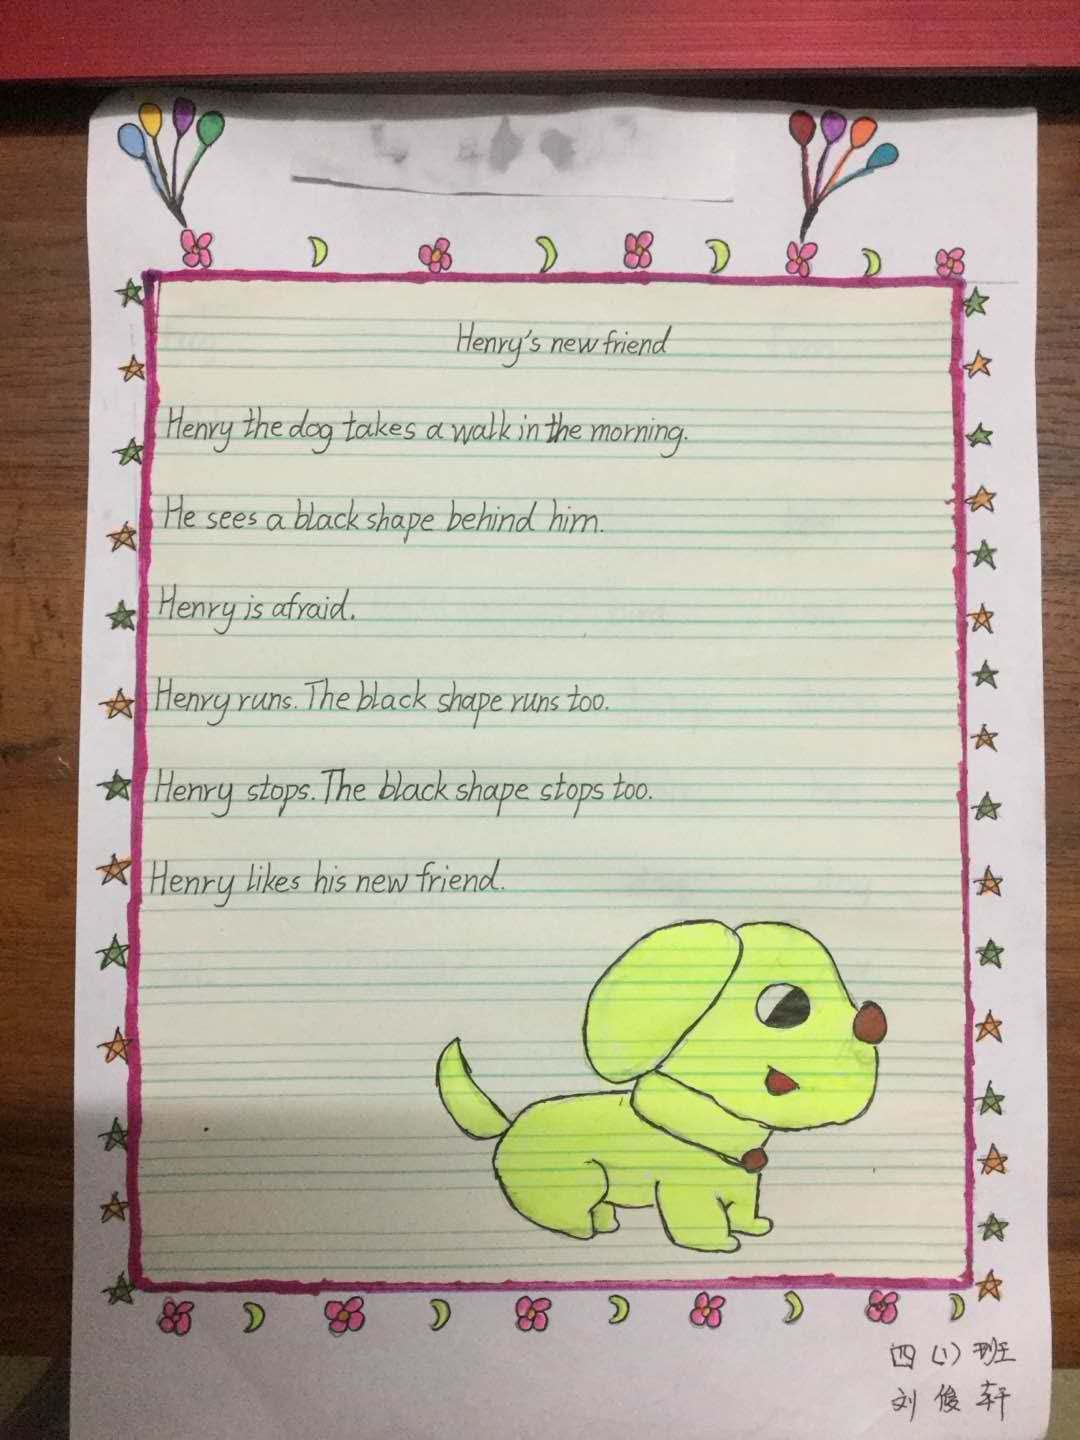 Henry's new friend
Henry the dog takes a walk in the morning.
He sees a black shape behind him.
Henry is afraid.
Henry runs. The black shape runs too.
Henry stops. The black shape stops too.
Henry likes his new friend.
四(1)班
刘俊轩